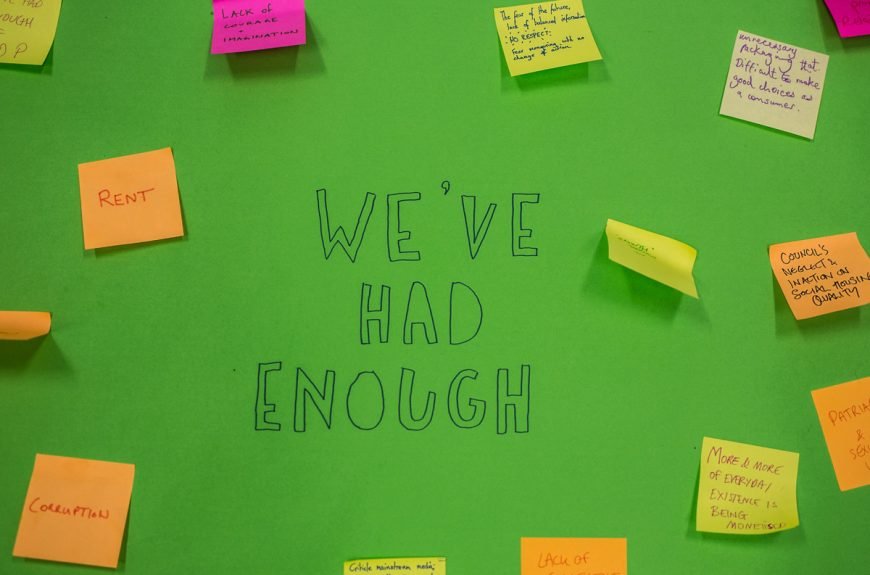 LACK OF
COURAGE
+
IMAGINATION
The fear of the future,
lack of balanced information
NO RESPECT.
unnecessary
packaging that.
Difficult to make
good choices as
a consumer.
RENT
WE'VE
HAD
ENOUGH
COUNCIL'S
NEGLECT &
INACTION ON
SOCIAL HOUSING
QUALITY
&
MORE & MORE
OF EVERYDAY
EXISTENCE IS
BEING
MONETISED
CORRUPTION
mainstream media;
LACK OF